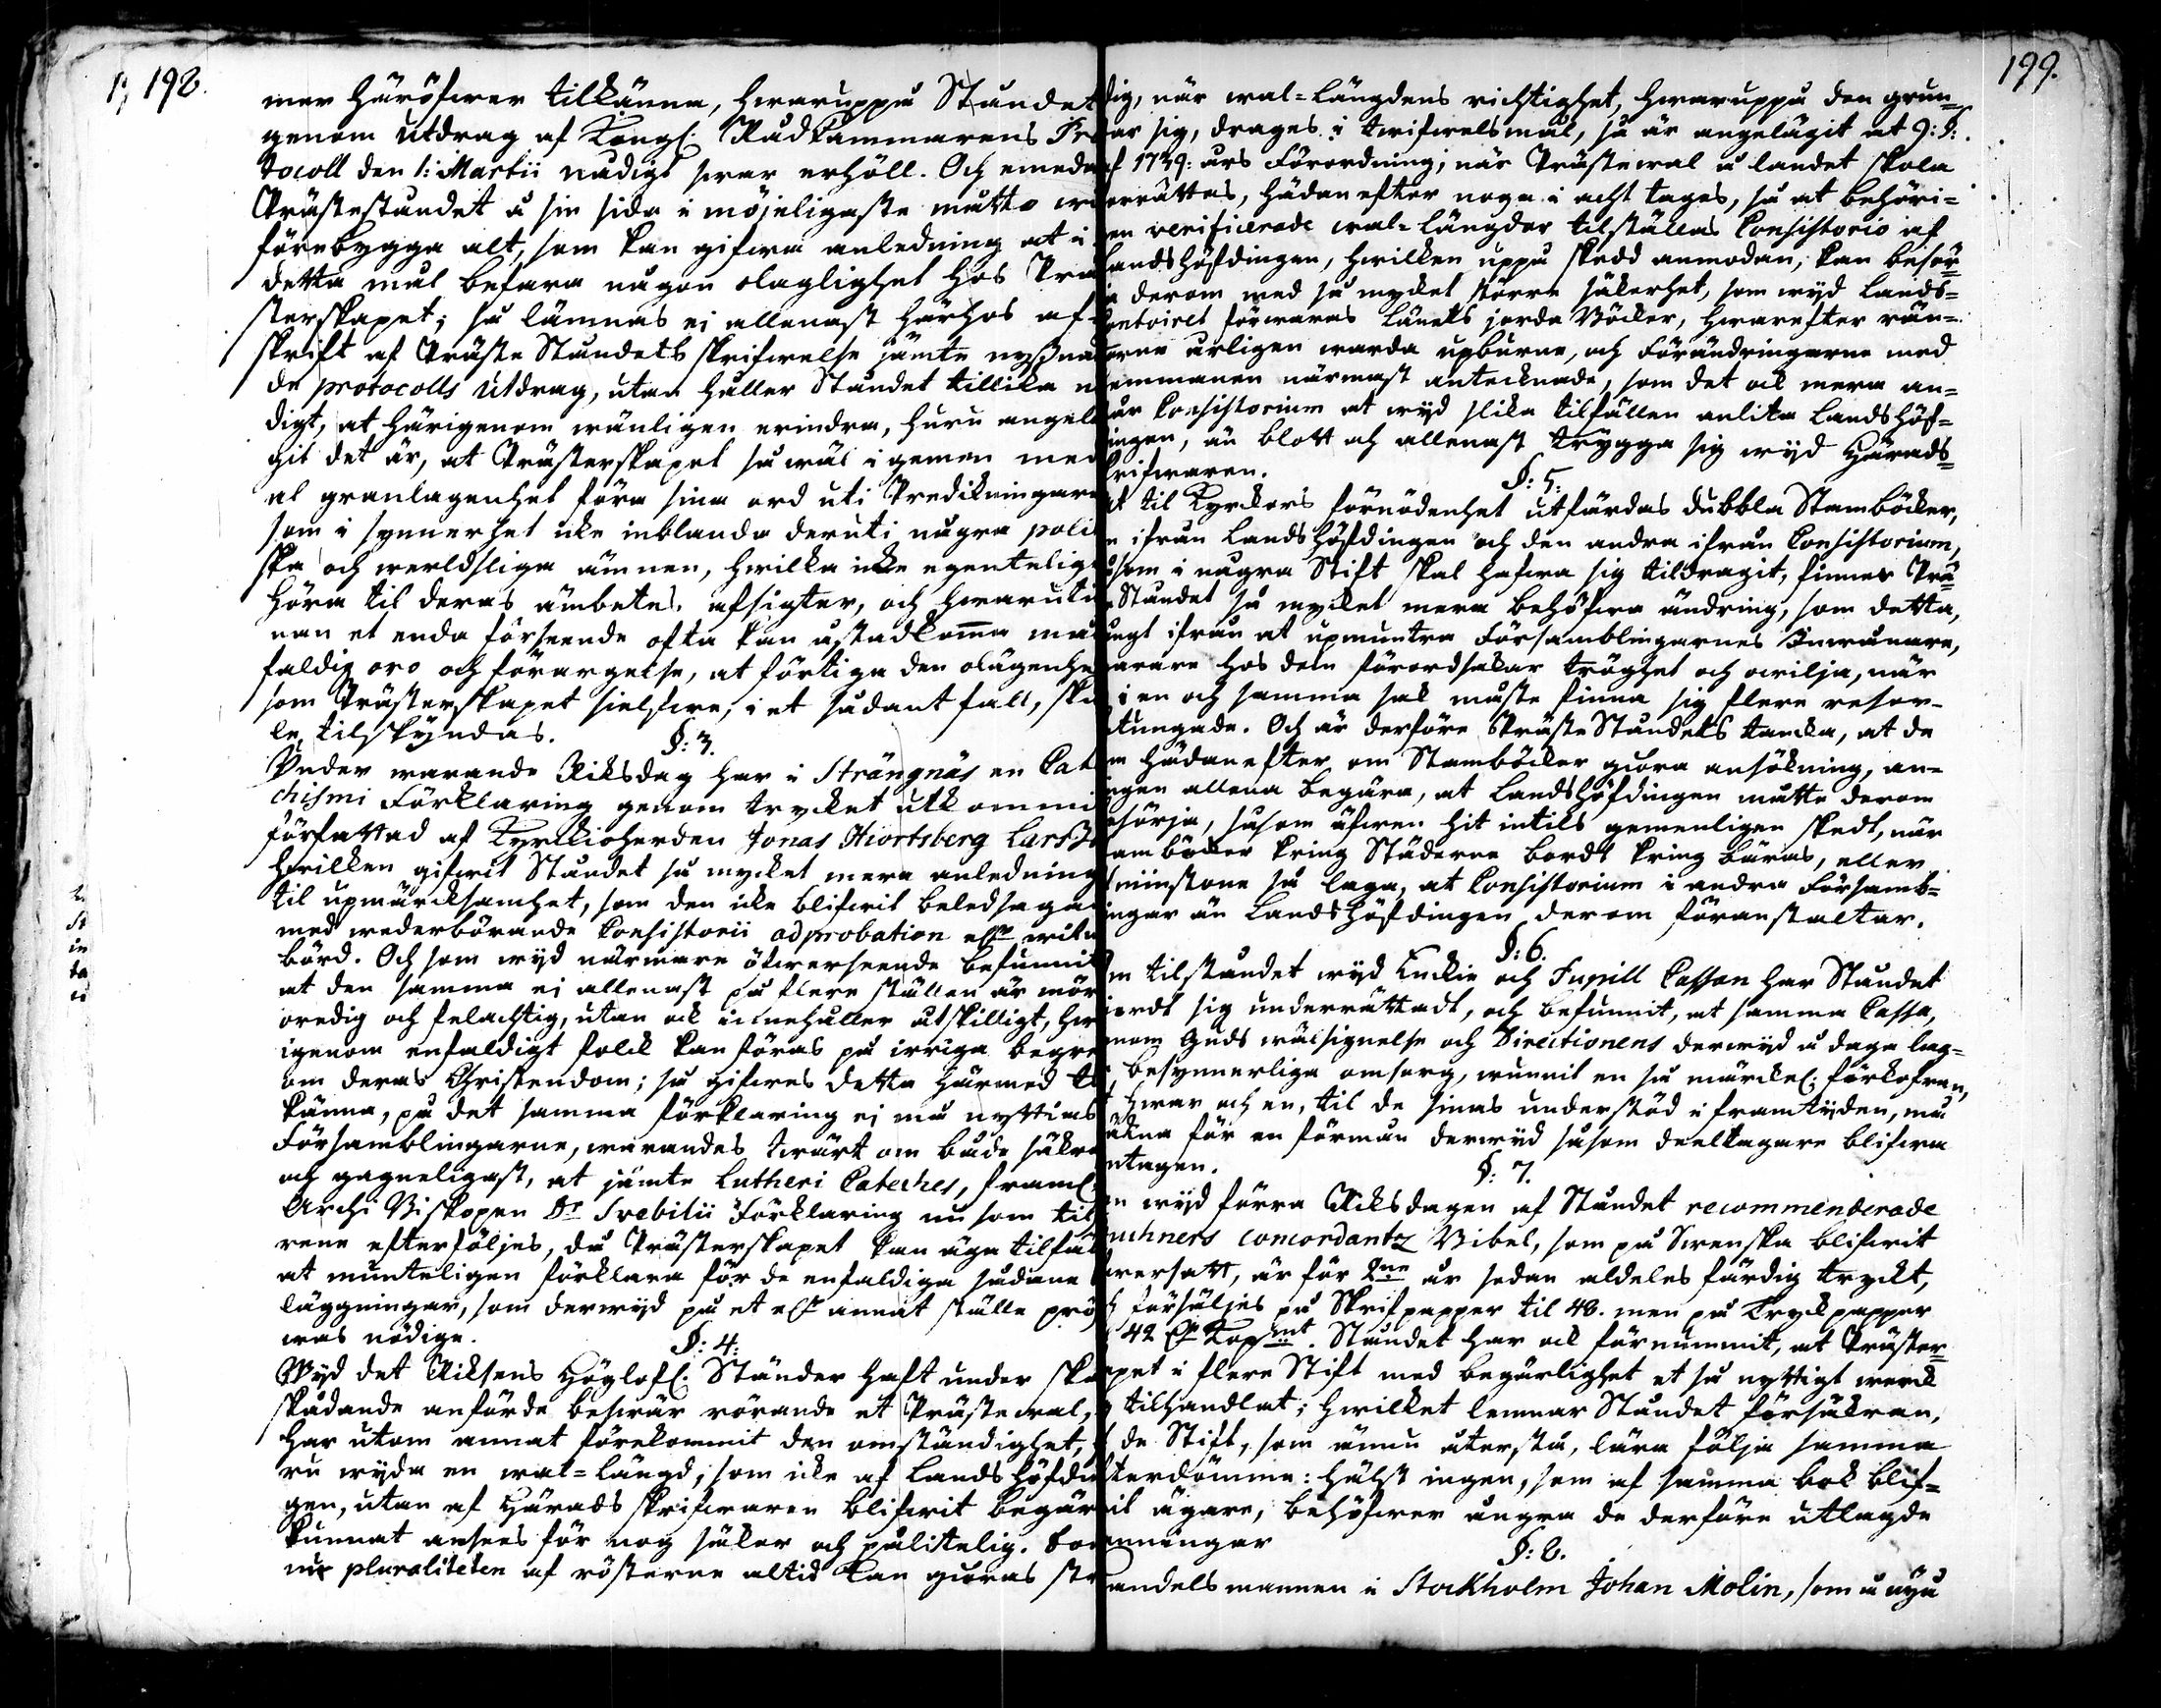 198.
mer häröfwer tilkänna, hwaruppå Ståndet
genom utdrag af Kongl. Rådkammarens Pro
tocoll den 1: Martii nådigt swar erhöll. Och emeda
Prästeståndet å sin sida i möjeligaste måtto
förebygga alt, som kan gifwa anledning at i
detta mål befara någon olaglighet hos Prä
sterskapet; så lämnas ej allenast härhos af
skrift af Präste Ståndets skrifwelse jämte nyßnäm
de protocolls utdrag, utan håller Ståndet tillika n
digt, at härigenom wänligen erindra, huru angelä
git det är, at Prästerskapet så wäl i gemen med
al granlagenhet föra sina ord uti Predikningar
som i synnerhet icke inblanda deruti några poli
ska och werldsliga ämnen, hwilka icke egentelig
höra til deras ämbetes afsigter, och hwaruti
nan et enda förseende ofta kan åstadkomma må
faldig oro och förargelse, at förtiga den olägenhe
som Prästerskapet sielfwe, i et sådant fall, sku
le tilskyndas.
§: 3.
Under warande Riksdag har i Strängnäs en Cate
chismi Förklaring genom trycket utkommi
författad af Kyrkioherden Jonas Hiortsberg
hwilken gifwit Ståndet så mycket mera anledning
til upmärcksamhet, som den icke blifwit beledsaga
med wederbörande Consistorii adprobation
börd. Och som wyd närmare öfwerseende befunnit
at den samma ej allenast på flere ställen är mör
oredig och felachtig, utan ock innehåller åtskilligt, hw
igenom enfaldigt folck kan föras på irriga begre
om deras Christendom; så gifwes detta härmed ti
känna, på det samma förklaring ej må nyttias
Församblingarne, warandes twärt om både säkra
och gagneligast, at jämte Lutheri Cateches, framl.
Archi Biskopen Dr Svebilii Förklaring nu som til
rene efterföljes, då Prästerskapet kan äga tilfäl
at munteligen förklara för de enfaldiga sådane
läggningar, som derwyd på et elr annat ställe prö
was nödige.
§: 4:
Wyd det Riksens Höglofl. Ständer haft under skä
skådande anförde beswär rörande et Prästewal,
har utom annat förekommit den omständighet,
ru wyda en wal=längd, som icke af Lands höfdin
gen, utan af Härads skrifwaren blifwit begär
kunnat ansees för nog säker och pålitelig.
når pluraliteten af rösterne altid kan giöras st
199.
dig, när wal=längdens richtighet, hwaruppå den grun=
ar sig, drages i twifwelsmål, så är angelägit at 9: §:
f 1739: års Förordning, när Prästewal å landet skola
errättas, hädanefter noga i acht tages, så at behöri=
en verificerade wal=längder tilställas Consistorio af
andshöfdingen, hwilken uppå skedd anmodan, kan besör=
ja derom med så mycket större säkerhet, som wyd Lands=
contoiret förwaras Länets jorda Böcker, hwarefter rän=
orne årligen warda upburne, och Förändringarne med
emmanen närmast antecknade, som det ock mera an=
år Consistorium at wyd slika tilfällen anlita Landshöf=
ingen, än blott och allenast trygga sig wyd Härads=
krifwaren.
§: 5:
t til Kyrckors förnödenhet utfärdas dubbla Stamböcker,
n ifrån Landshöfdingen och den andra ifrån Consistorium,
som i några Stift skal hafwa sig tildragit, finner Prä=
e Ståndet så mycket mera behöfwa ändring, som detta,
ångt ifrån at upmuntra Församblingarnes Inwånare,
arare hos dem förordsakar tröghet och owilja, när
i en och samma sak måste finna sig flere resor
tungade. Och är derföre Präste Ståndets tancka, at de
m hädanefter om Stamböcker giöra ansökning, an=
ngen allena begära, at Landshöfdingen måtte derom
esörja, såsom äfwen hit intils gemenligen skedt, när
amböcker kring Städerne bordt kring bäras, eller
minstone så laga, at Consistorium i andra Församb=
ingar än Landshöfdingen derom föranstaltar.
§: 6.
m tilståndet wyd Enckie och Pupill Cassan har Ståndet
iordt sig underrättadt, och befunnit, at samma Cassa,
nom Guds wälsignelse och Directionens derwyd å daga lag=
, besynnerliga omsorg, wunnit en så märckel. förkofran,
t hwar och en, til de sinas understöd i framtyden, må
äkna för en förmån derwyd såsom deeltagare blifwa
ntagen.
§: 7.
n wyd förra Riksdagen af Ståndet recommenderade
uchners concordantz Bibel, som på Swenska blifwit
wersatt, är för 2ne år sedan aldeles färdig tryckt,
h försäljes på Skrifpapper til 48. men på Tryckpapper
42 Dr Kopmt. Ståndet har ock förnummit, at Präster=
pet i flere Stift med begärlighet et så nyttigt werck
g tilhandlat; hwilket lemnar Ståndet försäkran,
de Stift, som ännu återstå, lära följa samma
fterdömme: hälst ingen, som af samma bok blif=
it ägare, behöfwer ångra de derföre utlagde
enningar
§: 8.
andelsmannen i Stockholm Johan Molin, som å nyo